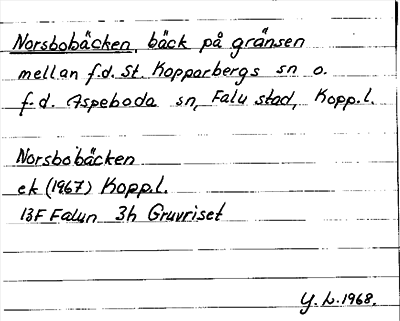 Norsbobäcken, bäck på gränsen
mellan f.d. St. Kopparbergs sn o.
f.d. Aspeboda sn, Falu stad, Kopp.l.
Norsbobäcken
ek (1967) Kopp.l.
13F Falun 3h Gruvriset
Y. L. 1968.